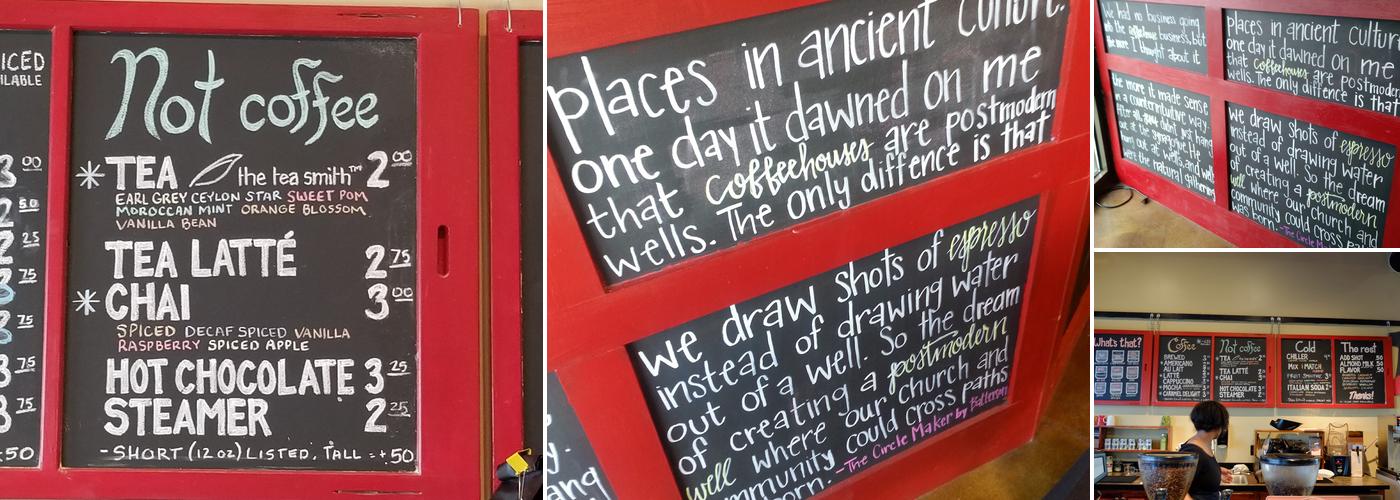 ICED
Not coffee
* TEA the tea smith™ 2 00
EARL GREY CEYLON STAR SWEET POM
MOROCCAN MINT ORANGE BLOSSOM
VANILLA BEAN
TEA LATTÉ 2 75
* CHAI 3 00
SPICED DECAF SPICED VANILLA
RASPBERRY SPICED APPLE
HOT CHOCOLATE 3 25
STEAMER 2 25
- SHORT (12 OZ) LISTED, TALL = +.50
places in ancient
one day it dawned on me
that coffeehouses are postmodern
wells. The only diffence is that
we draw shots of espresso
instead of drawing water
out of a well. So the dream
of creating a postmodern
well where our church and
community could cross paths
-The Circle Maker by Batterson
we had no business going
business, but
the more I thought about it
the more it made sense
in a counterintuitive way.
the natural gathering
places in ancient cultur
one day it dawned on me
that coffeehouses are postmodern
wells. The only diffence is that
we draw shots of espresso
instead of drawing water
out of a well. So the dream
of creating a postmodern
well where our church and
community could cross pat
was born. -The Circle M
What's that?
Coffee
BREWED
* AMERICANO
AU LAIT
* LATTE
CAPPUCCINO
MOCHA
CARAMEL DELIGHT
Not coffee
* TEA
TEA LATTÉ
CHAI
HOT CHOCOLATE
STEAMER
Cold
CHILLER
MIX + MATCH
FRUIT SMOOTHIE
ITALIAN SODA
The rest
ADD SHOT
ALMOND MILK
FLAVOR
Thanks!